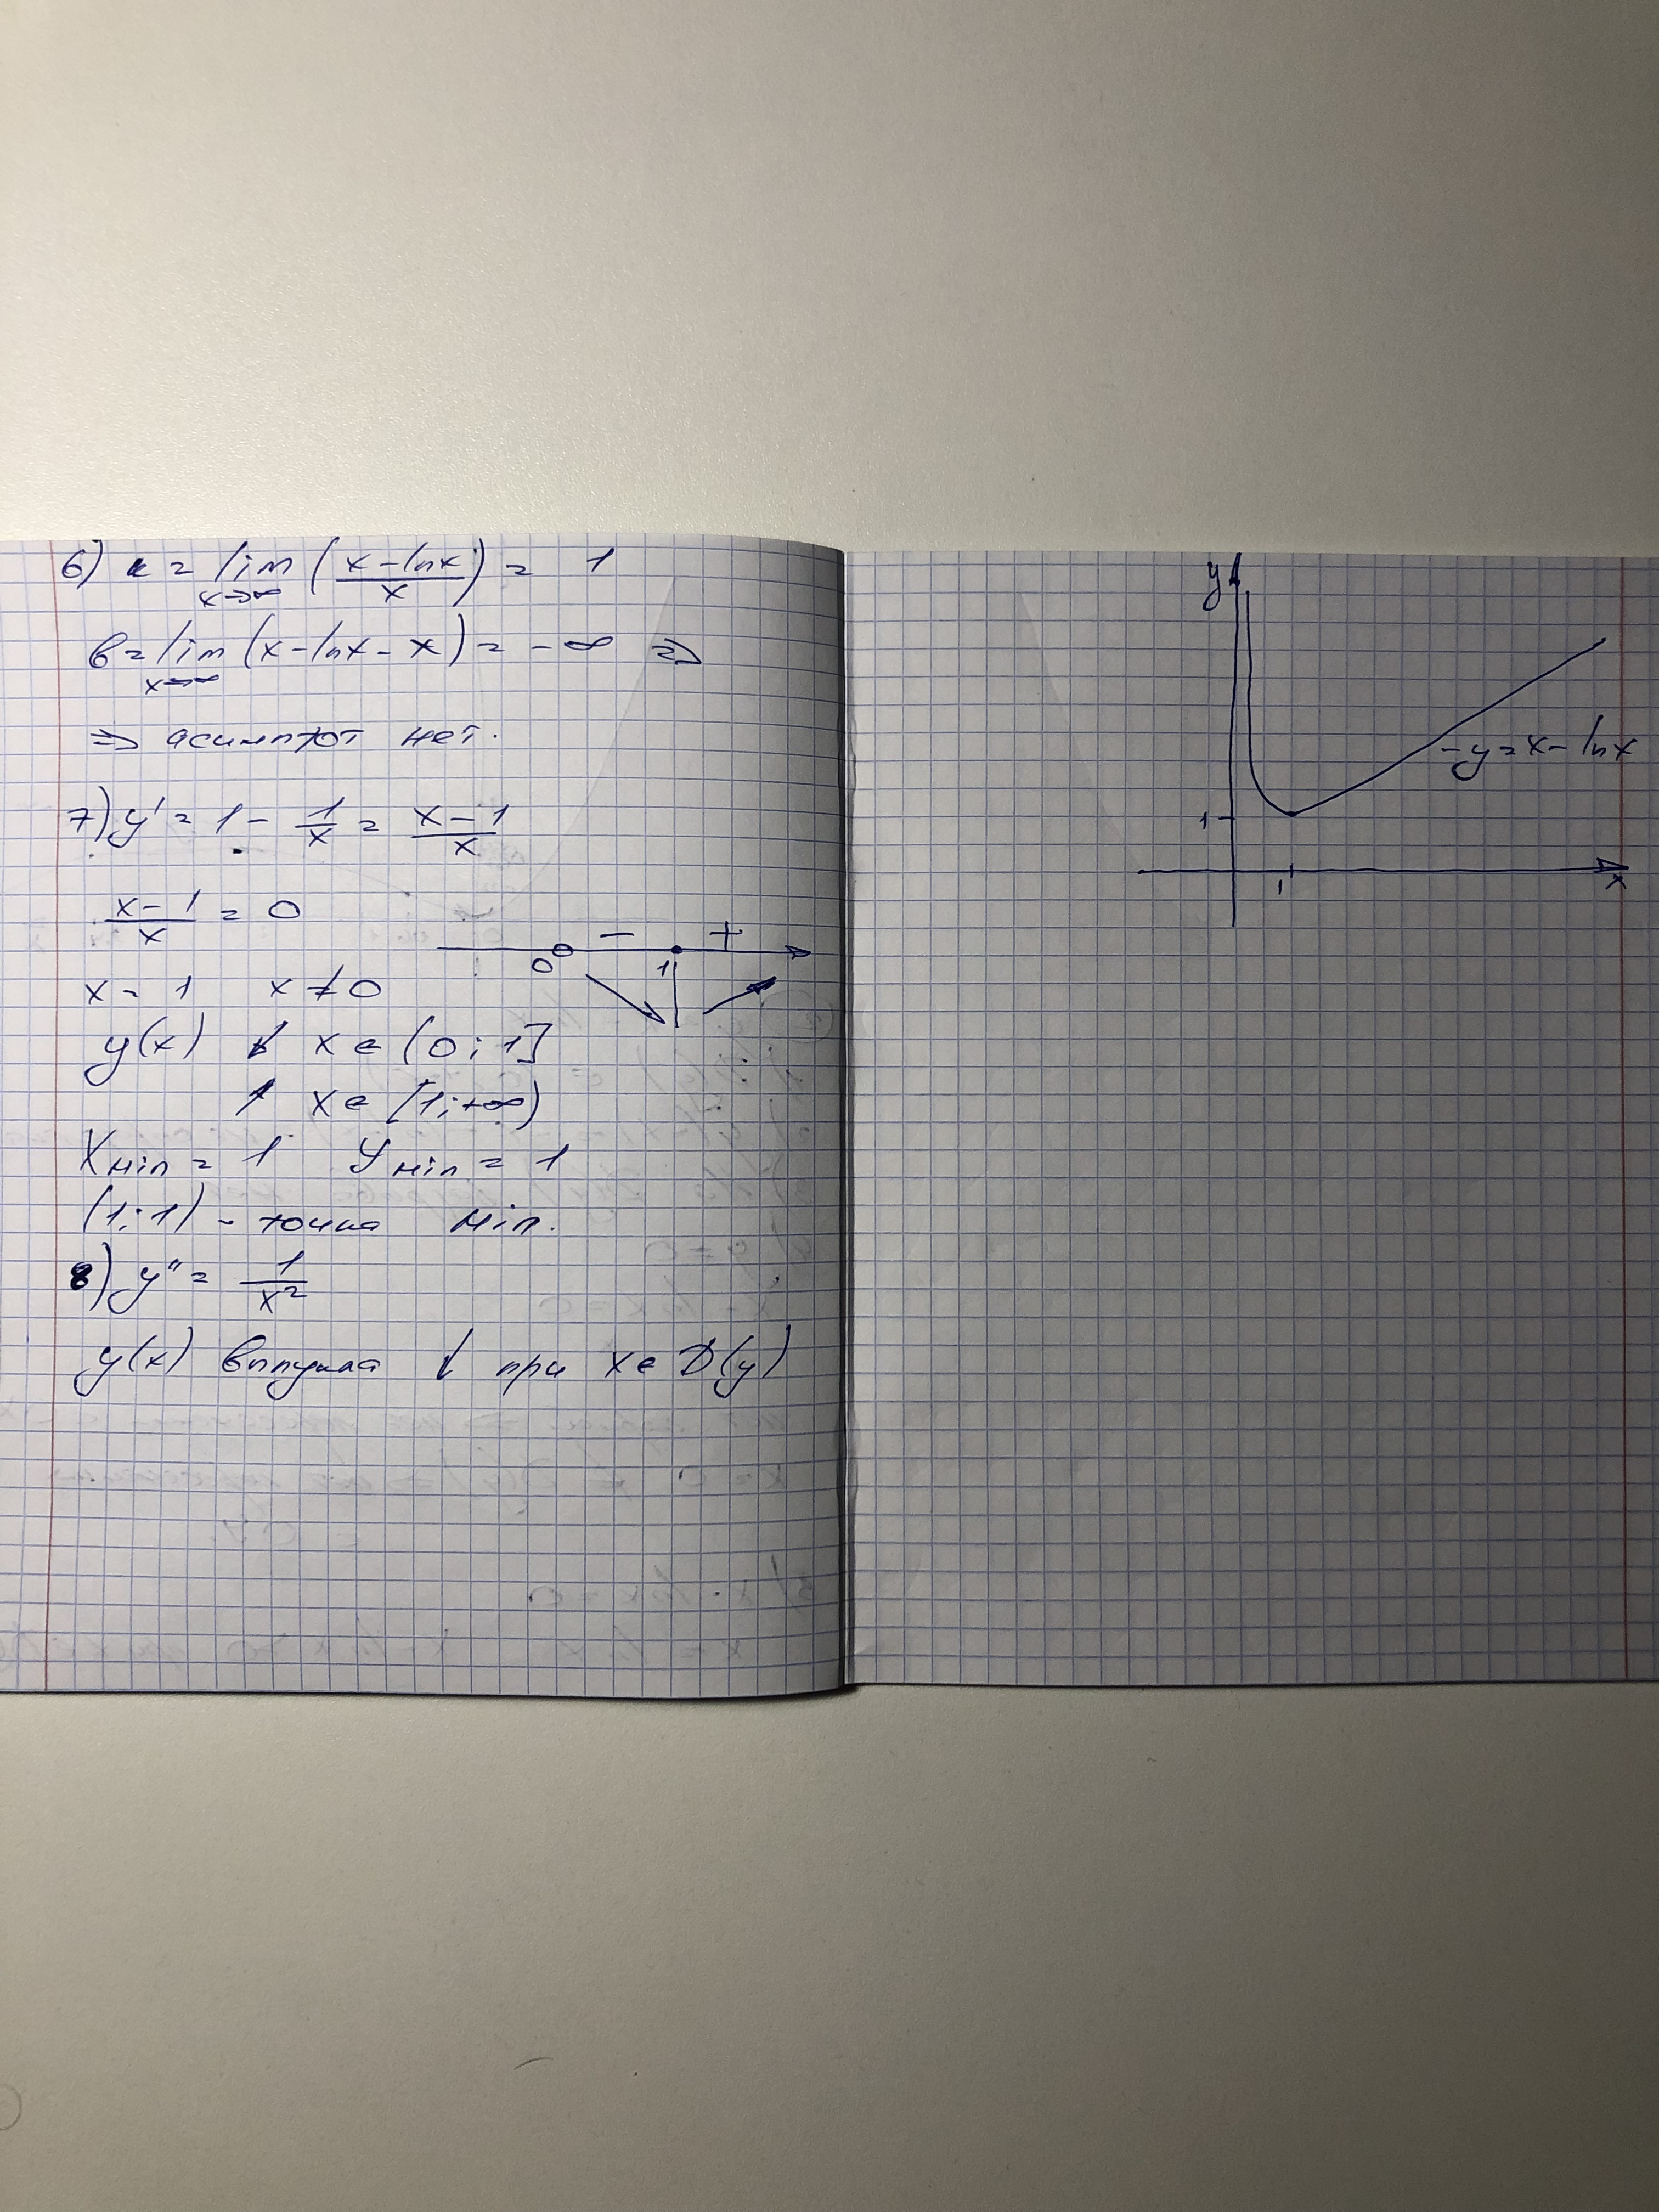 6) к = lim x→∞ (x - lnx / x) = 1
в = lim x→∞ (x - lnx - x) = -∞ ⇒
⇒ асимптот нет.
7) y' = 1 - 1/x = x-1/x
x-1/x = 0
- +
0 1
x = 1 x ≠ 0
y(x) ↓ x ∈ (0; 1]
↑ x ∈ [1; +∞)
Xmin = 1 Ymin = 1
(1; 1) - точка min.
8) y'' = 1/x²
y(x) выпукла ↓ при x ∈ D(y)
y
- y = x - lnx
1
1
x